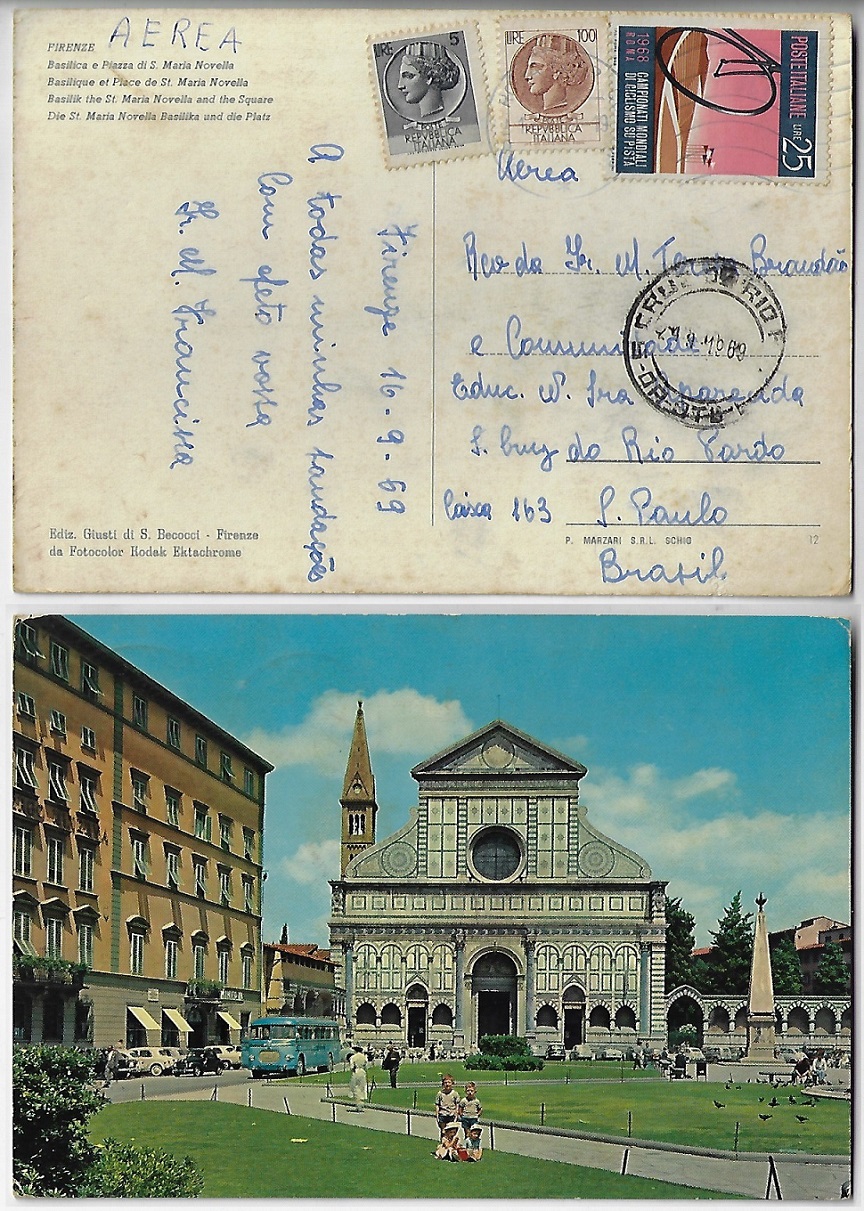 FIRENZE
Basilica e Piazza di S. Maria Novella
Basilique et Place de St. Maria Novella
Basilik the St. Maria Novella and the Square
Die St. Maria Novella Basilika und die Platz
AEREA
LIRE 5
POSTE
REPVBBLICA
ITALIANA
LIRE 100
REPVBBLICA
ITALIANA
POSTE ITALIANE LIRE 25
1968 CAMPIONATI MONDIALI
ROMA DI CICLISMO SU PISTA
Aerea
Firenze 16-9-69
A todas minhas saudações
Com afeto vossa
Ir. M. Francisca
Revda Ir. M. Brandão
e Comunidade
Educ. N. Sra Aparecida
S. Cruz do Rio Pardo
Caixa 163 S. Paulo
Brasil
Ediz. Giusti di S. Becocci - Firenze
da Fotocolor Kodak Ektachrome
P. MARZARI S.R.L. SCHIO
12